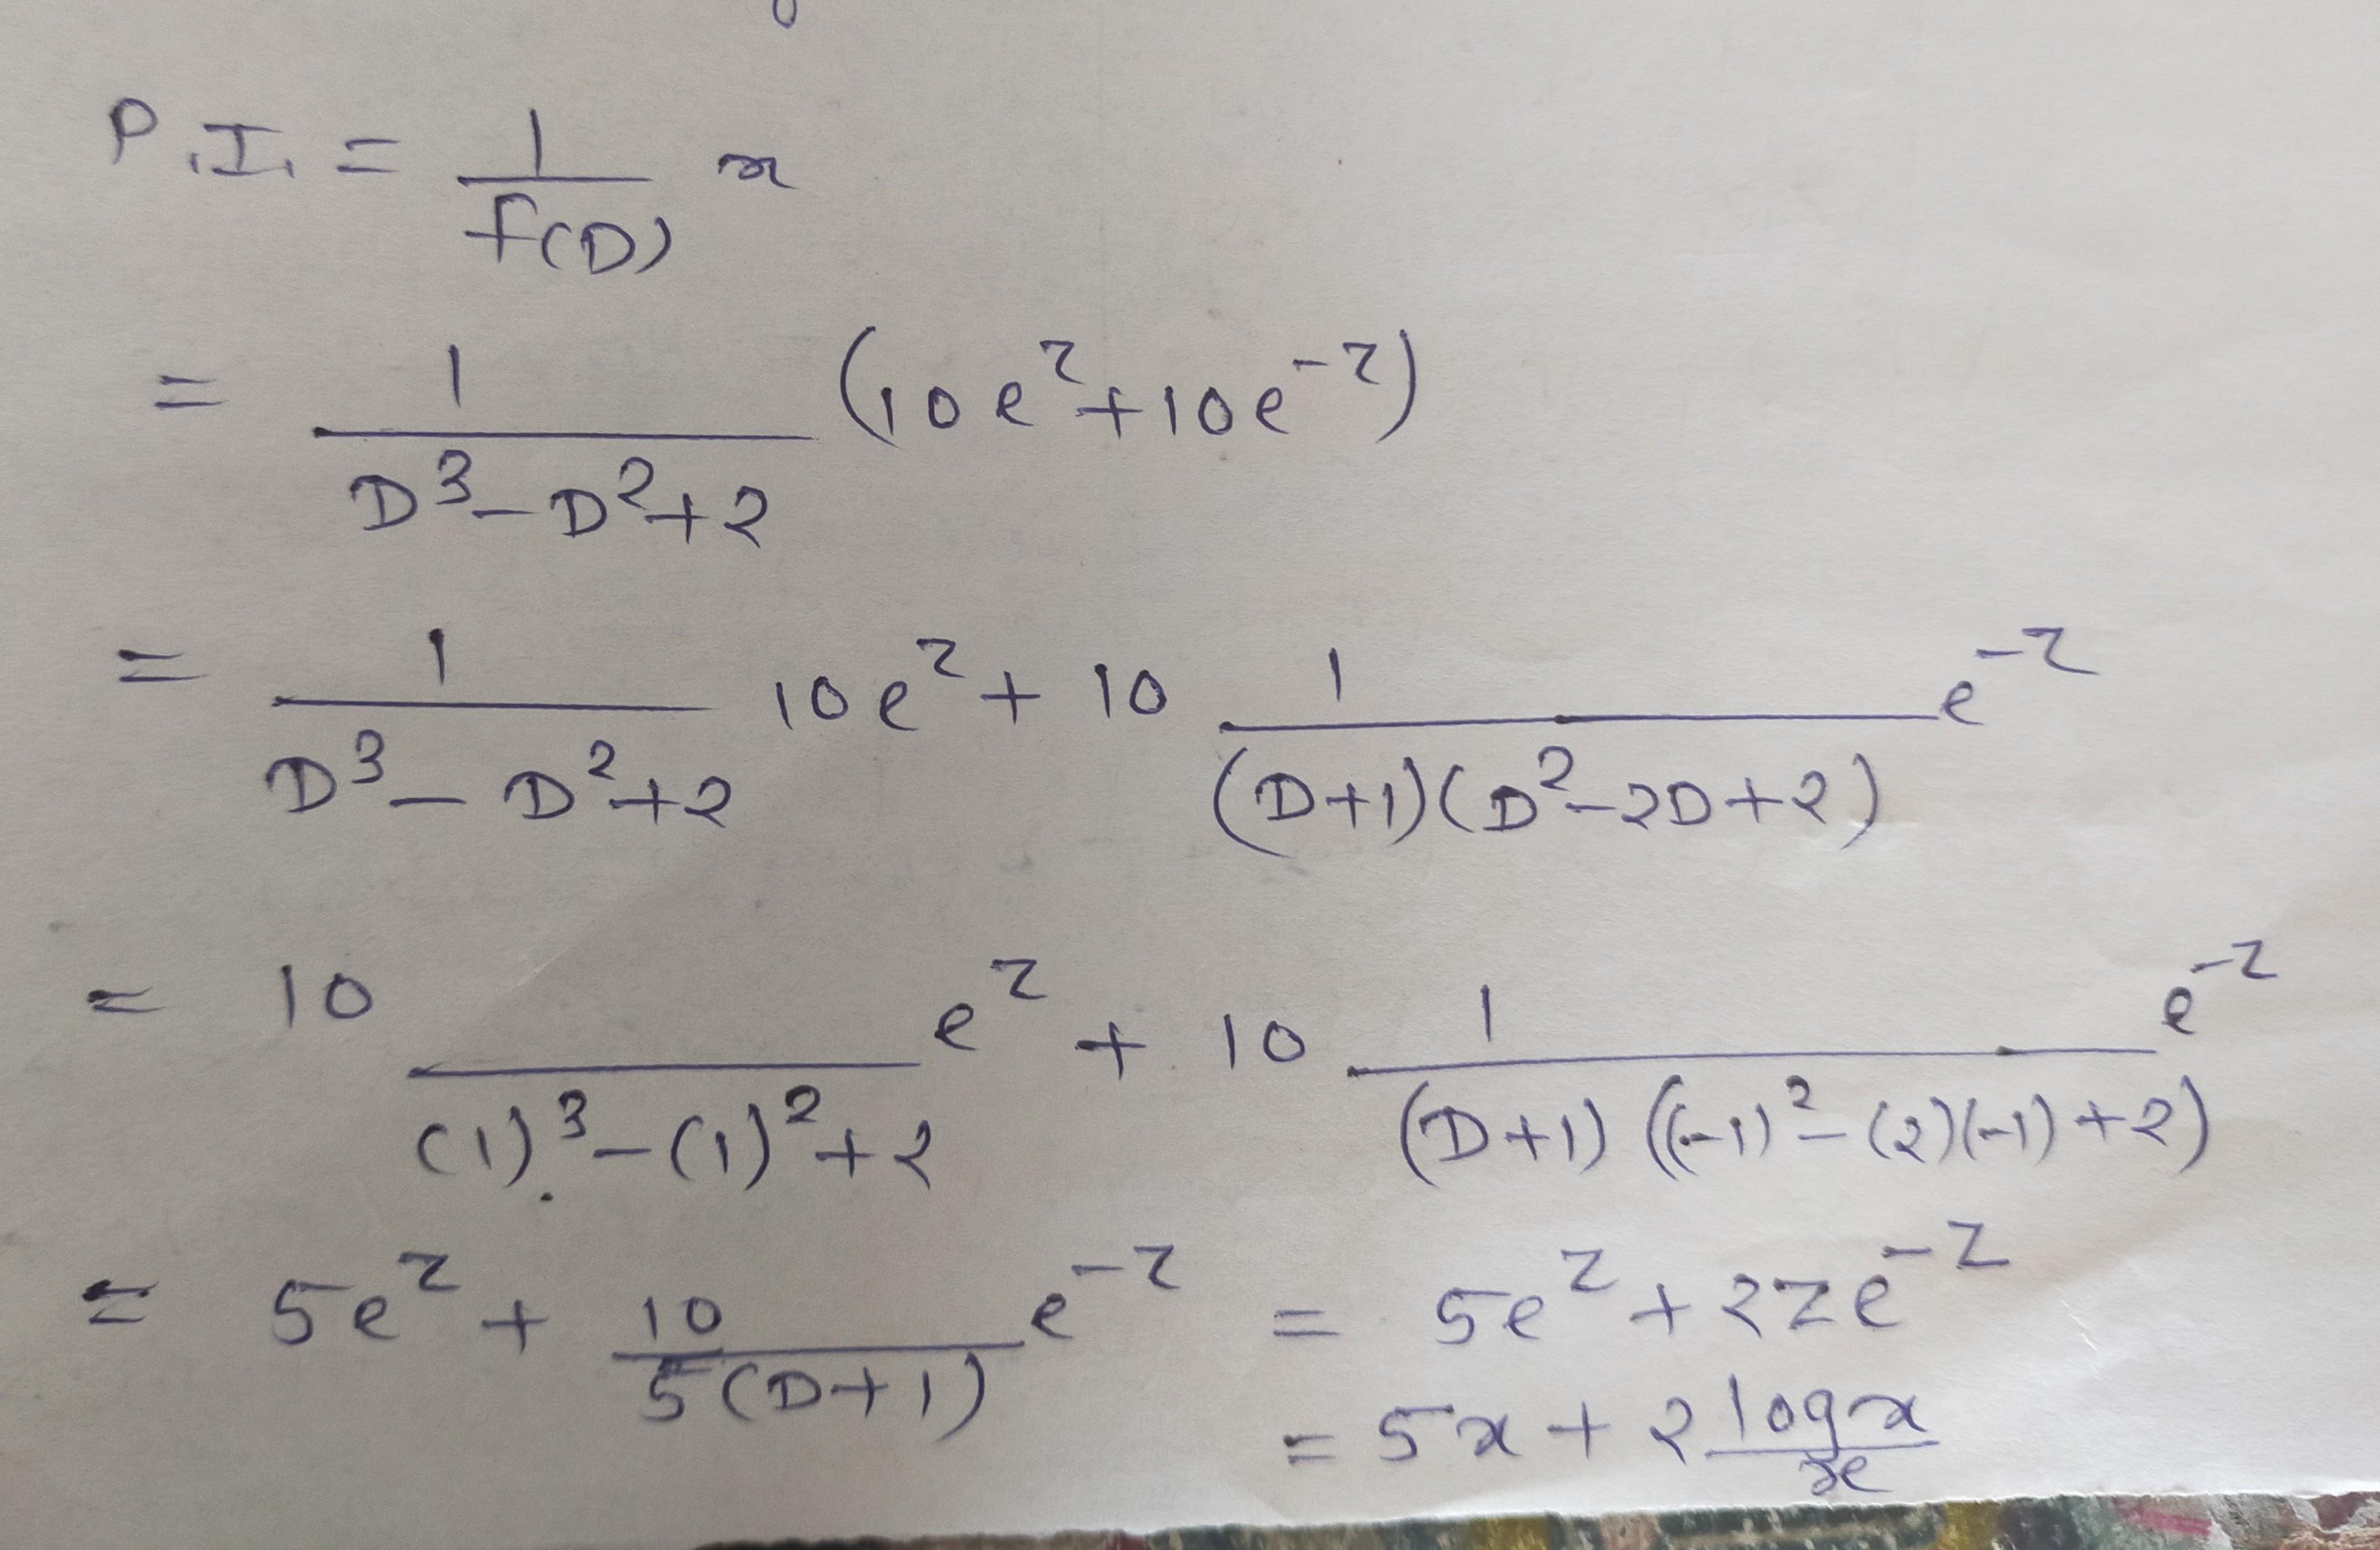 P.I. = 1/f(D) x
= 1/(D³ - D² + 2) (10e^z + 10e^-z)
= 1/(D³ - D² + 2) 10e^z + 10 1/((D+1)(D² - 2D + 2)) e^-z
= 10 /((1)³ - (1)² + 2) e^z + 10 1/((D+1)((-1)² - (2)(-1) + 2)) e^-z
= 5e^z + 10/(5(D+1)) e^-z = 5e^z + 2ze^-z
= 5x + 2 logx/x